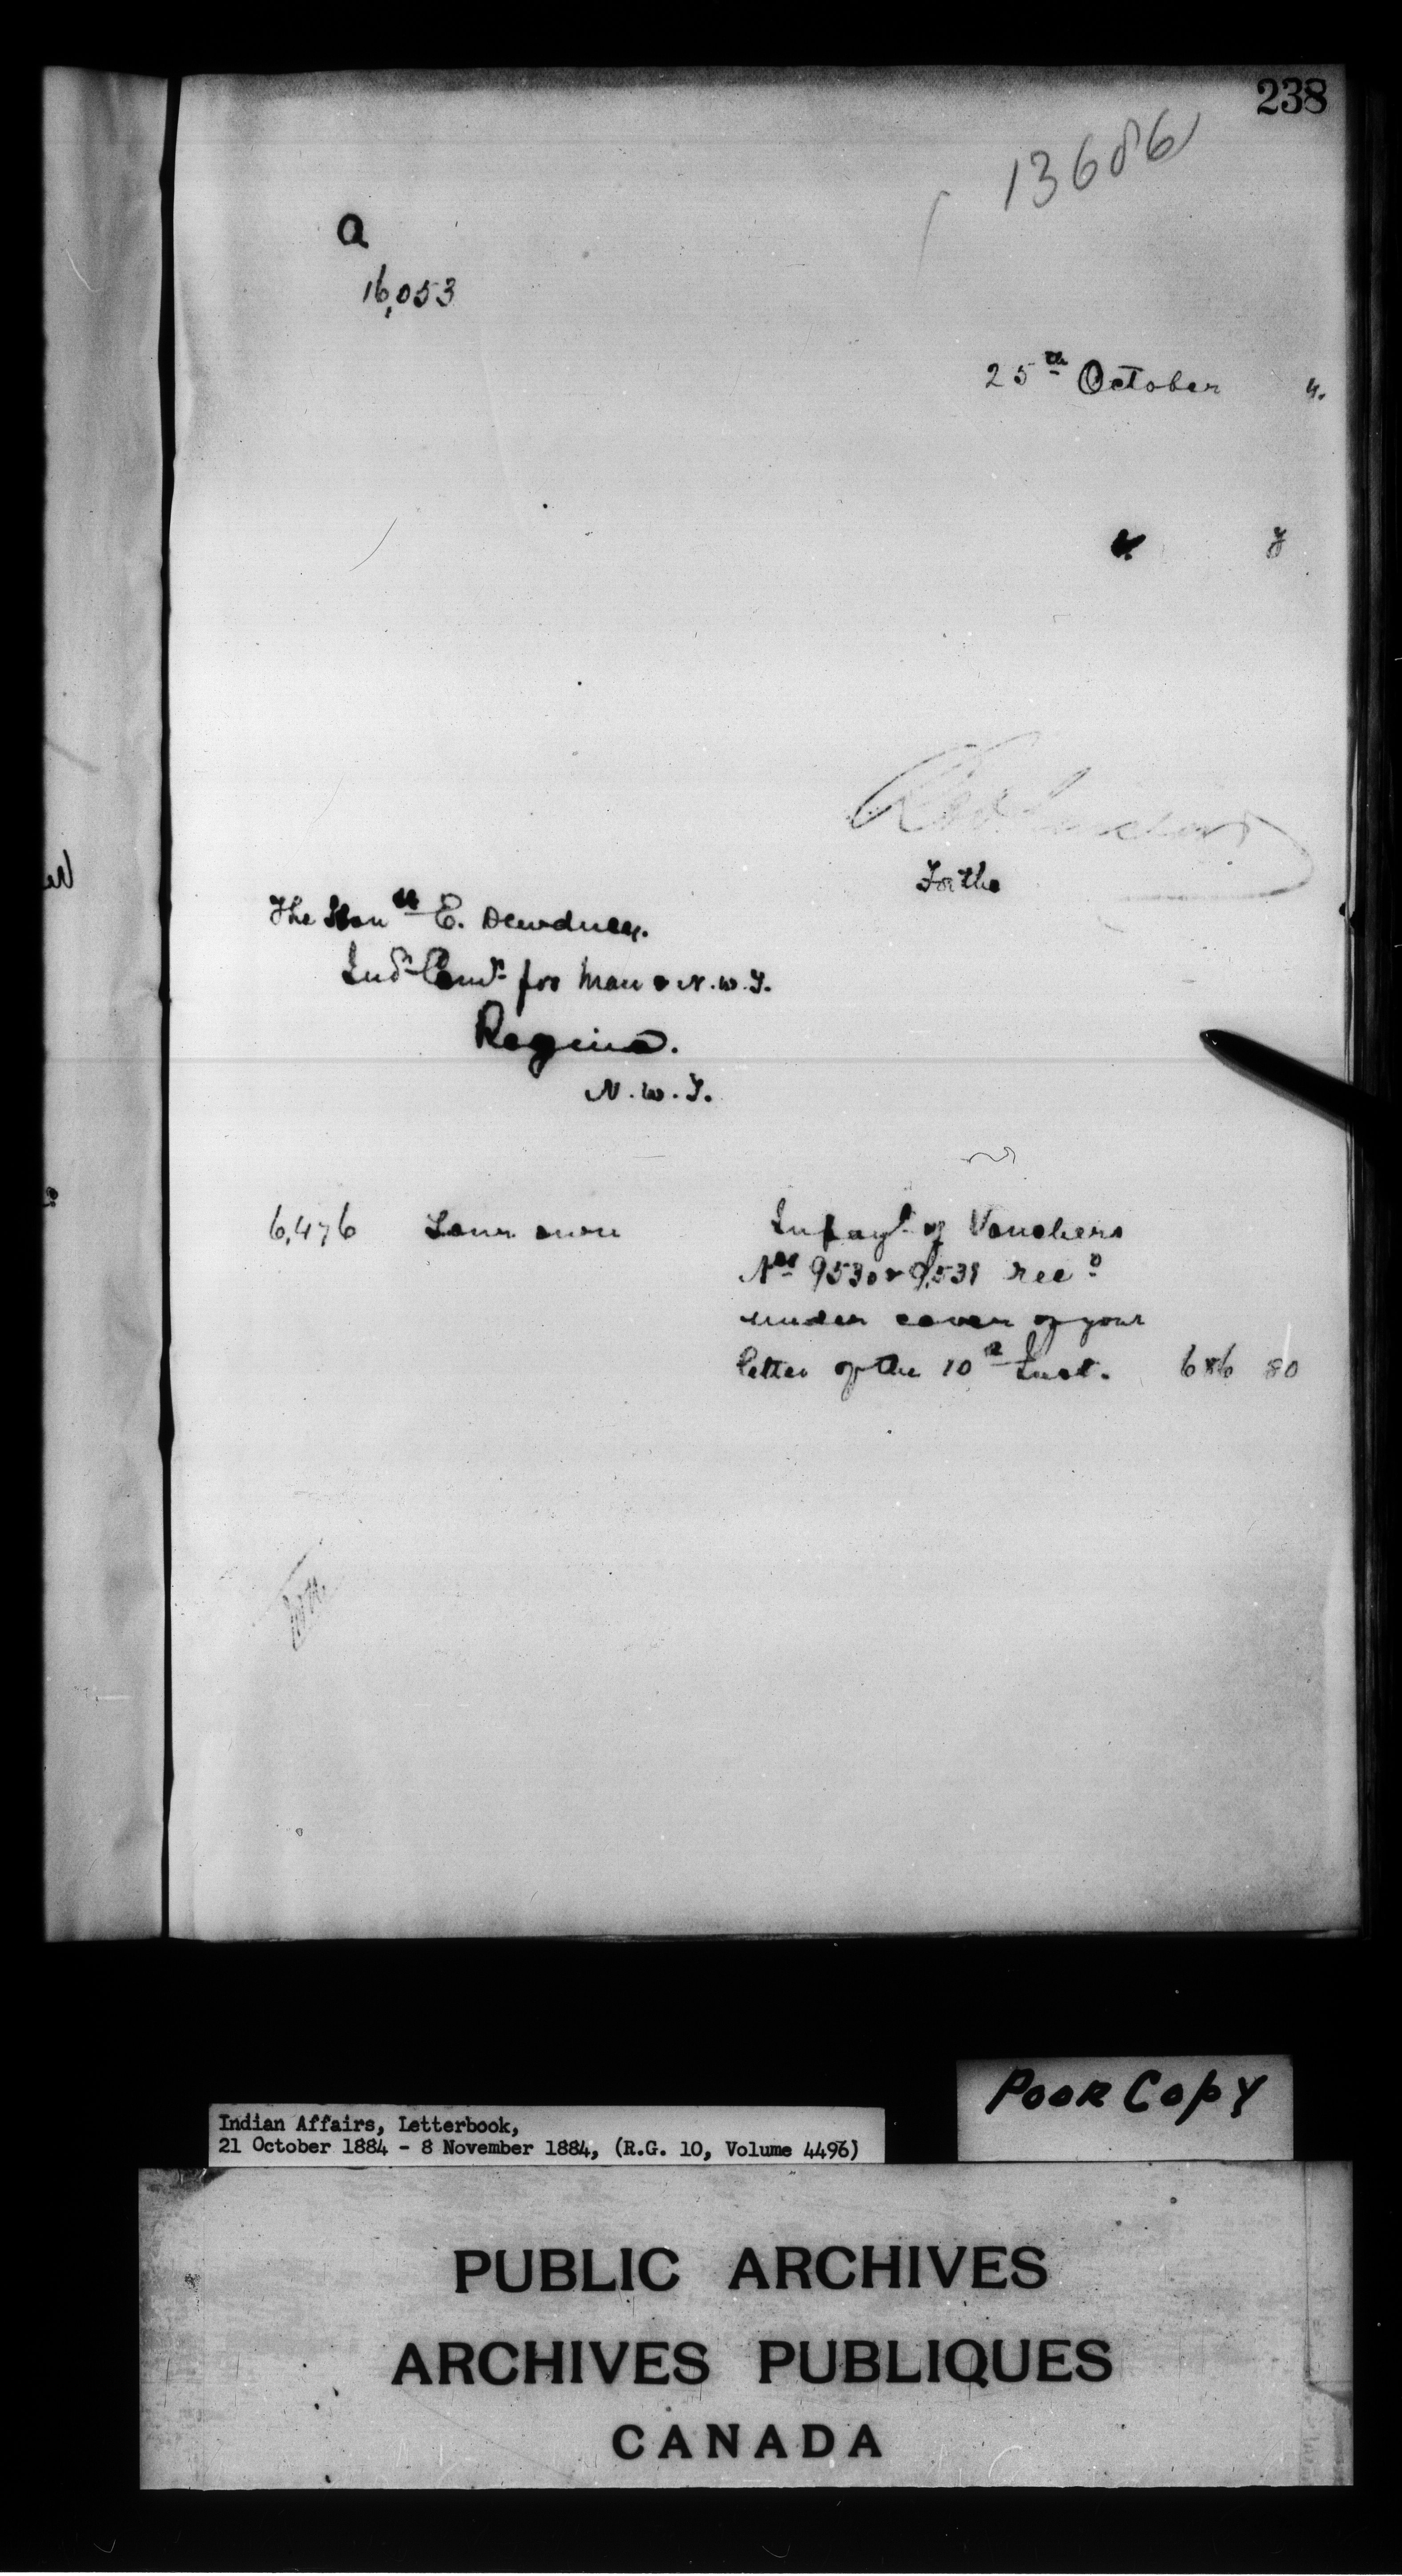 238
13686
a
16,053
25th October 4.
The Honble E. Dewdney.
Indn Comr for Man & N.W.T.
Regina.
N.W.T.
For the
6,476 Your own In payt of Vouchers
Nos 9530 & 9,531 recd
under cover of your
letter of the 10th Inst. 686 80
Poor Copy
Indian Affairs, Letterbook,
21 October 1884 - 8 November 1884, (R.G. 10, Volume 4496)
PUBLIC ARCHIVES
ARCHIVES PUBLIQUES
CANADA